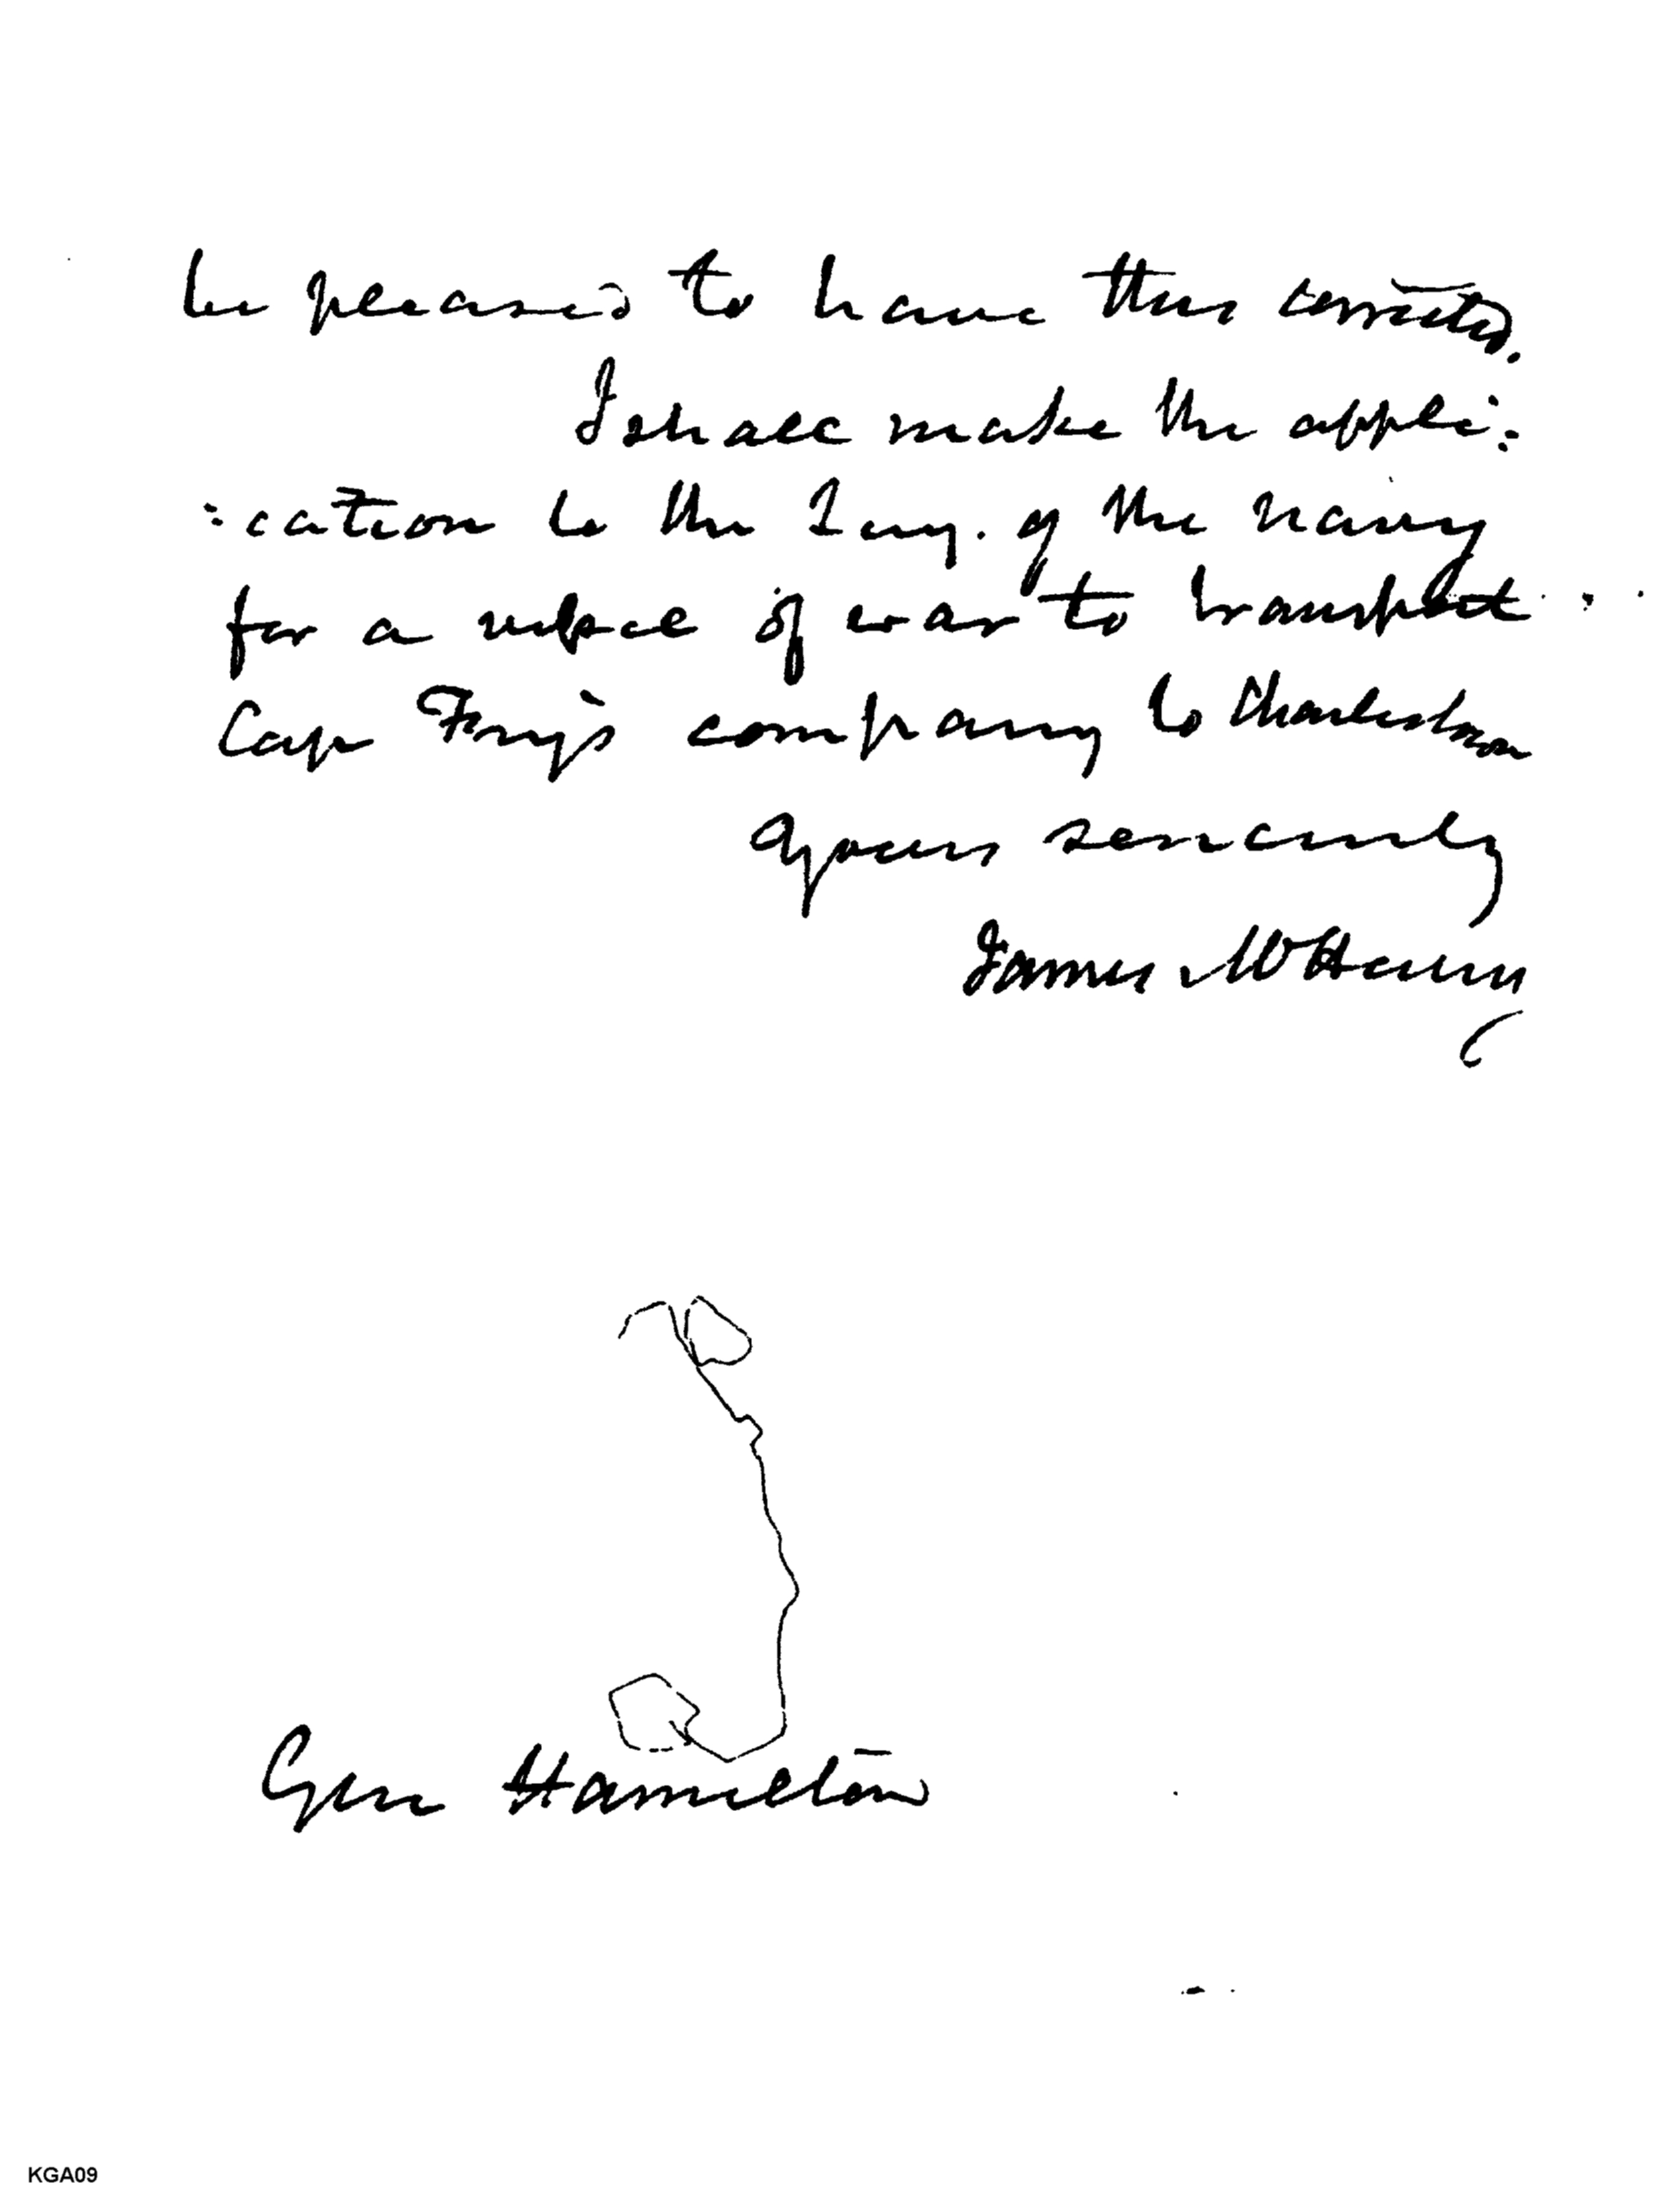 be pleased to have this corrected.
I shall make the appli:
:cation to the Secy. of the navy
for a vessel of war to transport
Cap Frye's company to Charleston
Yours sincerely
James McHenry
Gen Hamilton
KGA09